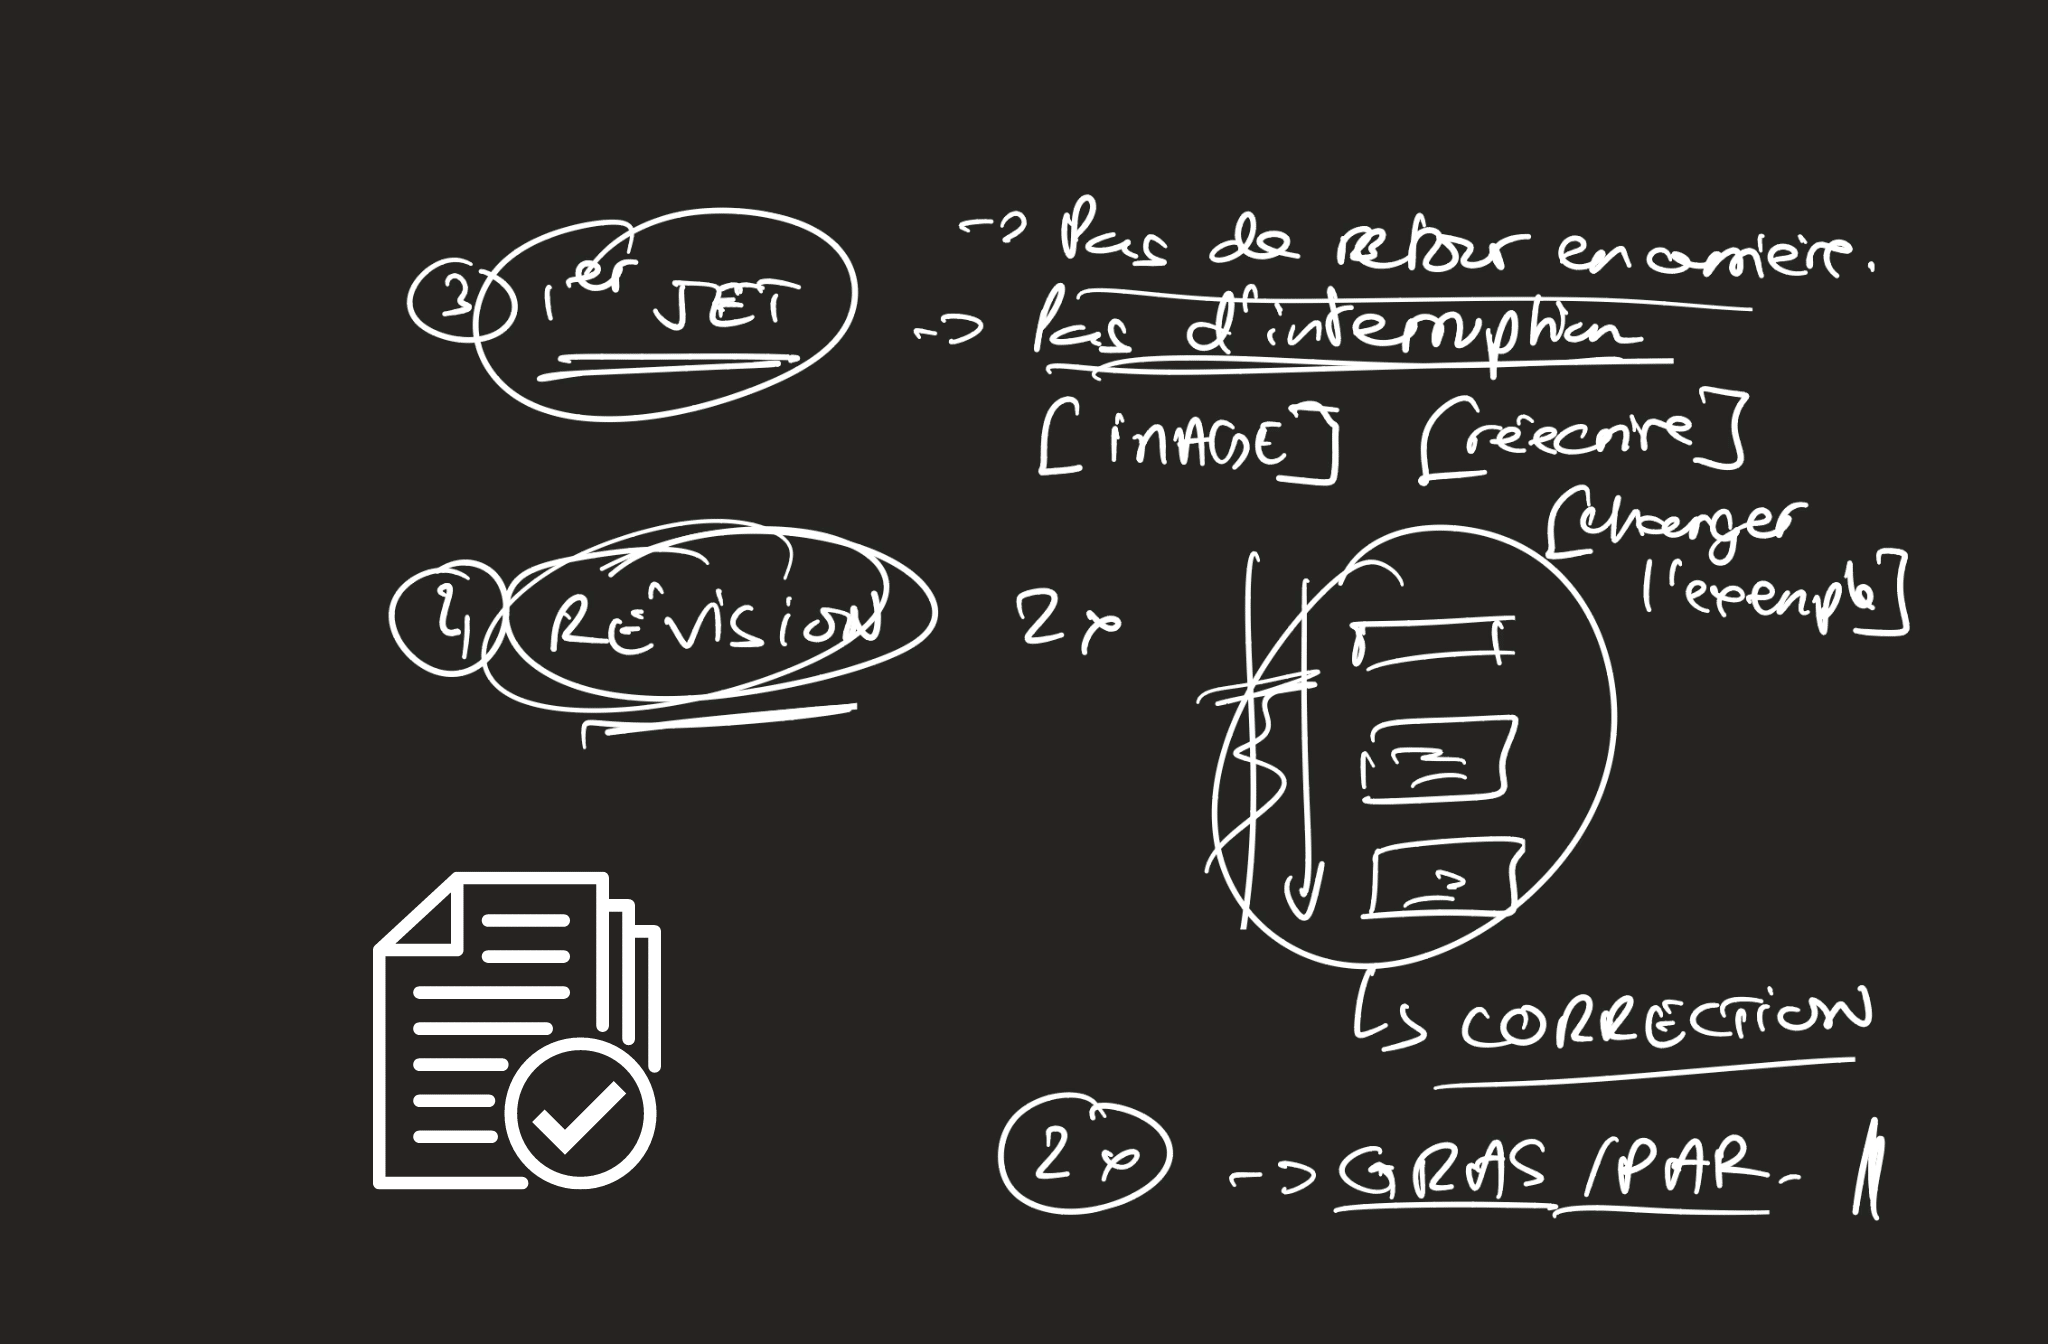 ③ 1er JET
-> Pas de retour en arrière.
-> Pas d'interruption
[IMAGE] [réécrire]
[changer
l'exemple]
④ RÉVISION 2x
↳ CORRECTION
2x -> GRAS / PAR-